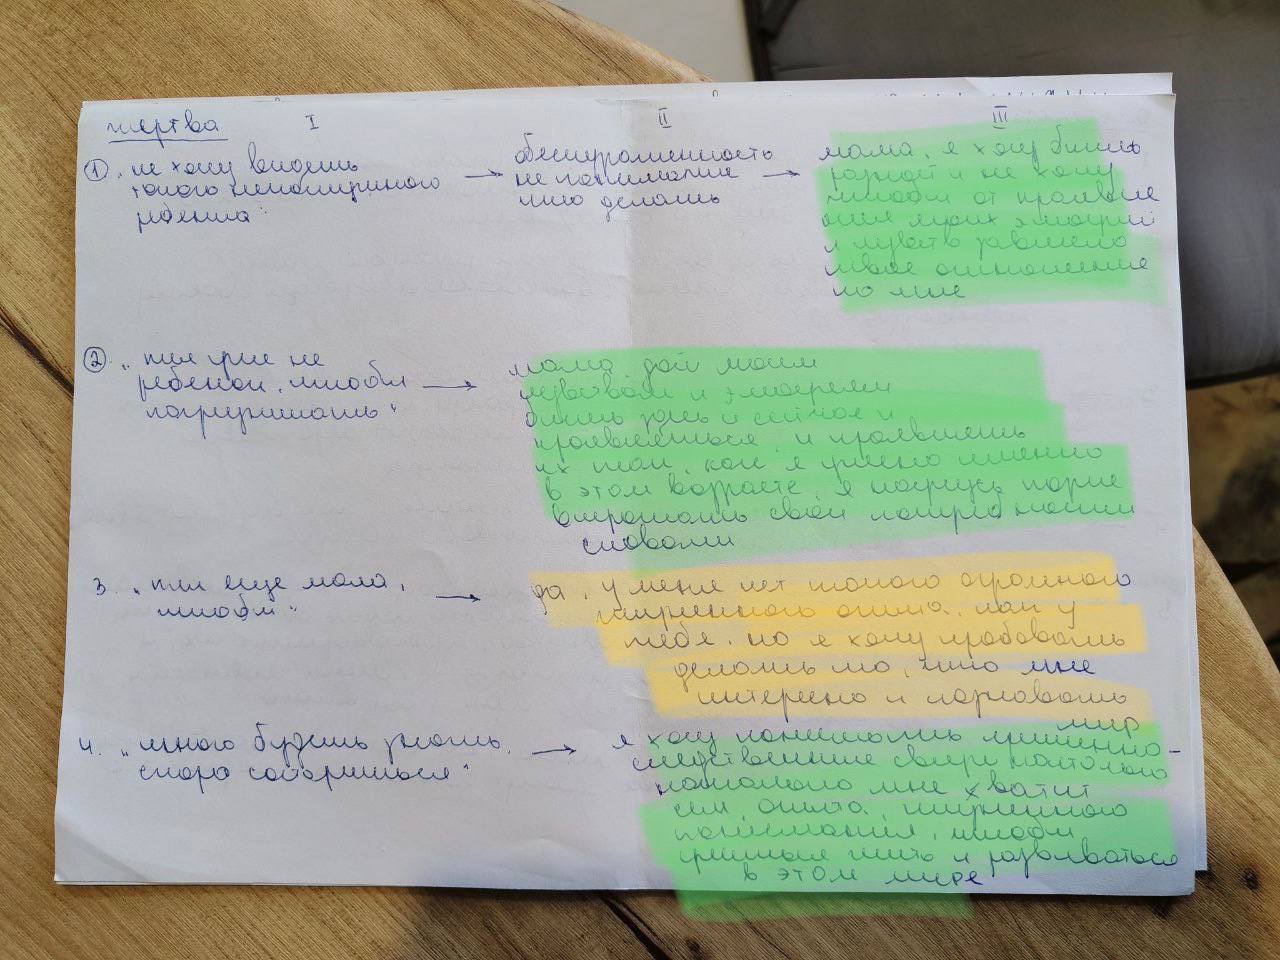 жертва I II III
① "не хочу видеть
такого
ребенка"
→
не понимание
что делать
→
мама, я хочу быть
рядом и не хочу
чтобы от проявле
ния моих эмоций
и чувств зависело
твое отношение
ко мне
② "ты уже не
ребенок, чтобы
капризничать"
→
мама, дай моим
чувствам и эмоциям
быть здесь и сейчас и
проявляться, и проявлять
их так, как я умею именно
в этом возрасте, я научусь позже
выражать свои потребности
словами
3. "ты еще мала,
чтобы"
→
да, у меня нет такого огромного
жизненного опыта, как у
тебя, но я хочу пробовать
делать то, что мне
интересно и познавать
мир
4. "много будешь знать,
скоро состаришься"
→
я хочу понимать причинно-
следственные связи настолько
насколько мне хватит
сил, опыта, жизненного
понимания, чтобы
учиться жить и развиваться
в этом мире